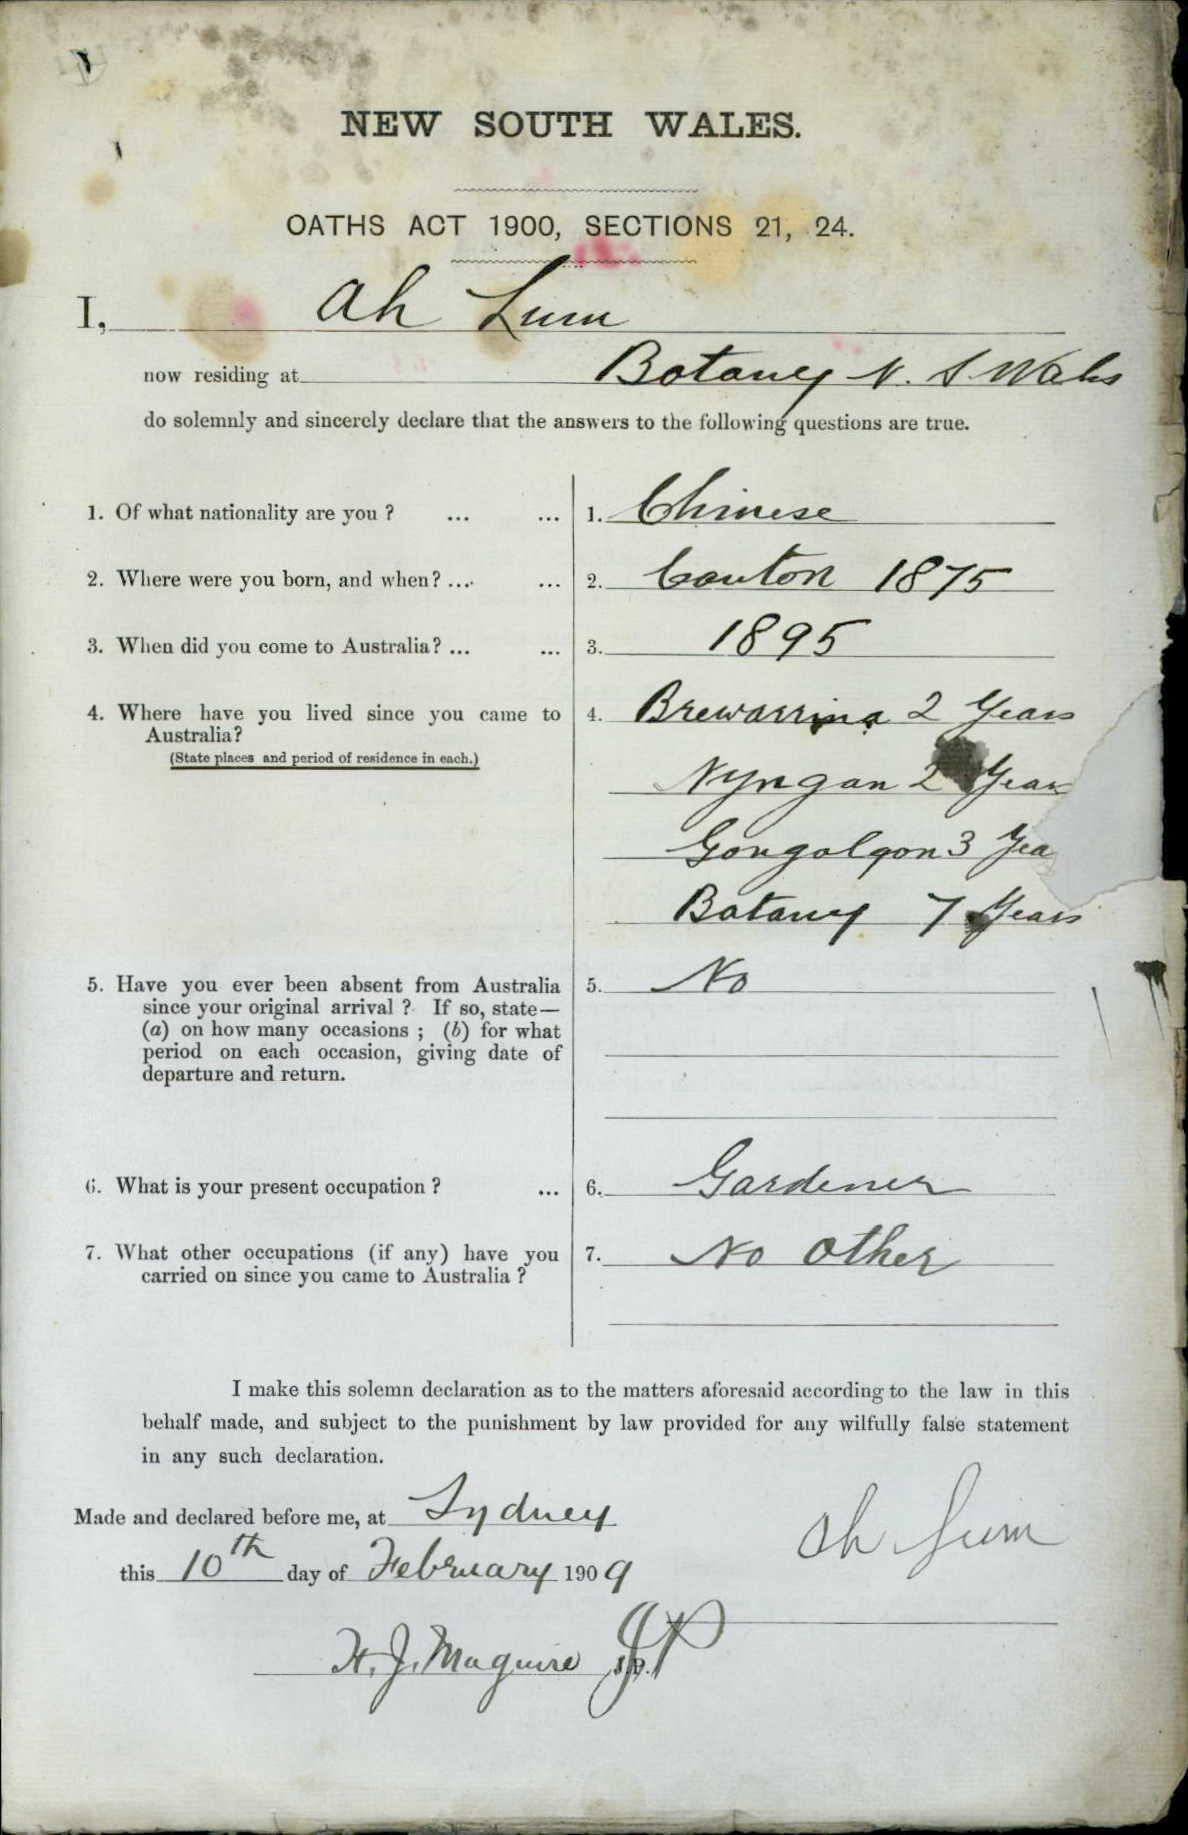 NEW SOUTH WALES.
OATHS ACT 1900, SECTIONS 21, 24.
I, Ah Lum
now residing at Botany N. S Wales
do solemnly and sincerely declare that the answers to the following questions are true.
1. Of what nationality are you ? ... ... 1. Chinese
2. Where were you born, and when ? ... ... 2. Canton 1875
3. When did you come to Australia ? ... ... 3. 1895
4. Where have you lived since you came to 4. Brewarrina 2 Years
Australia?
(State places and period of residence in each.)
Nyngan 2 Years
Gongolgon 3 Yea
Botany 7 Years
5. Have you ever been absent from Australia 5. No
since your original arrival ? If so, state—
(a) on how many occasions ; (b) for what
period on each occasion, giving date of
departure and return.
6. What is your present occupation ? ... 6. Gardener
7. What other occupations (if any) have you 7. No other
carried on since you came to Australia ?
I make this solemn declaration as to the matters aforesaid according to the law in this
behalf made, and subject to the punishment by law provided for any wilfully false statement
in any such declaration.
Made and declared before me, at Sydney
Ah Lum
this 10th day of February 1909
H. J. Maguire J.P.